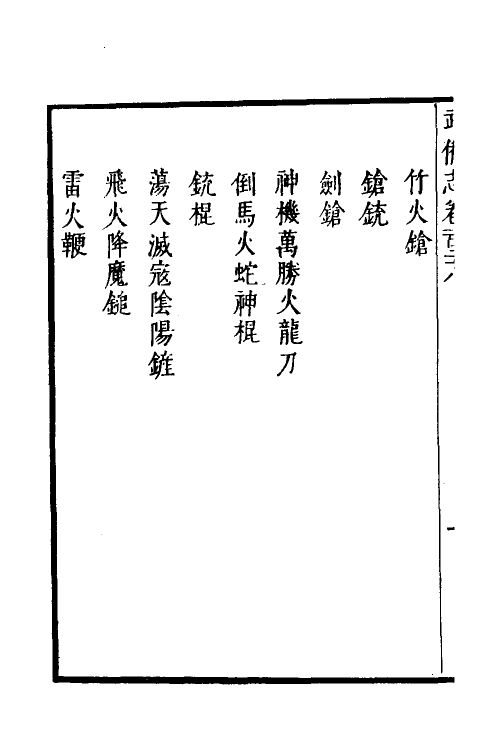 武備志卷百二十八
竹火鎗
鎗銃
劍鎗
神機萬勝火龍刀
倒馬火蛇神棍
銃棍
蕩天滅寇陰陽鏟
飛火降魔鎚
雷火鞭